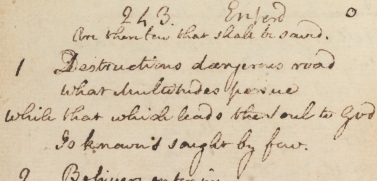 243. Enford 0
Are there few that shall be saved.
1 Destructions dangerous road
What Multitudes persue
While that which leads the soul to God
Is known & sought by few.
2 Believers enter in